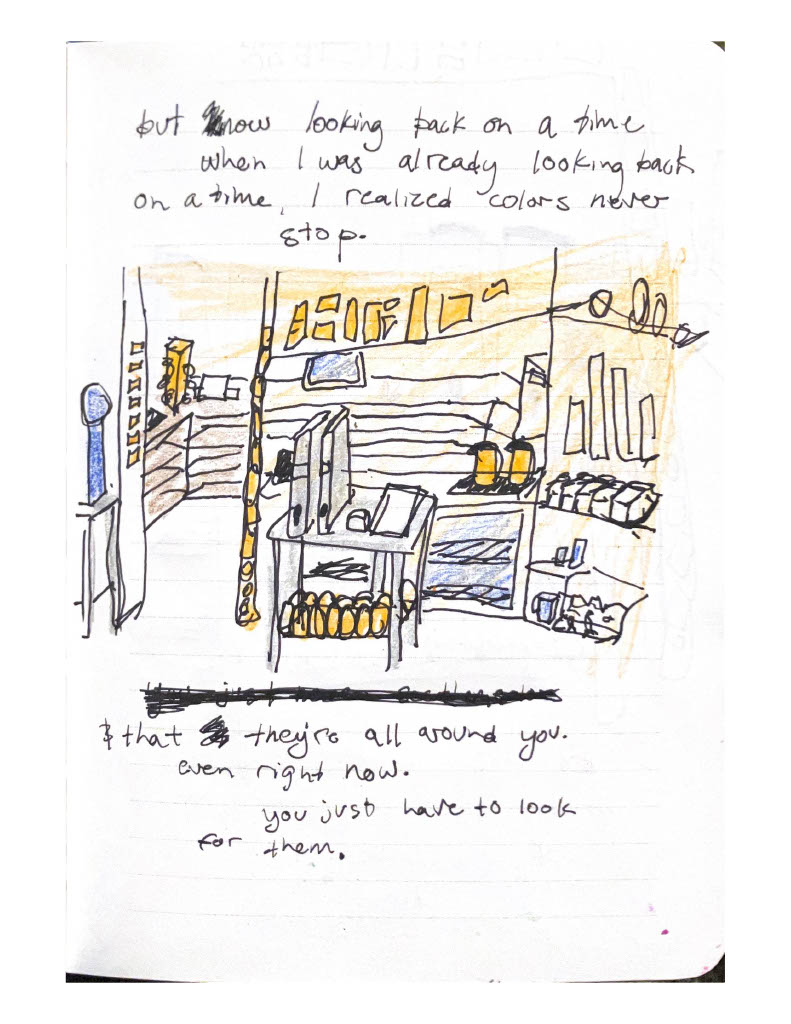 but now looking back on a time
when I was already looking back
on a time, I realized colors never
stop.
& that they're all around you.
even right now.
you just have to look
for them.